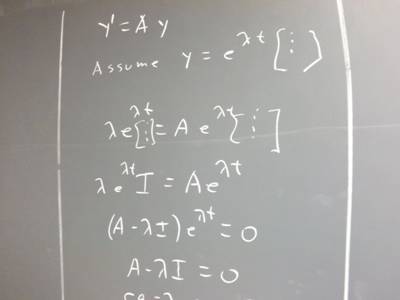 y' = A y
Assume y = e^{λt} [⋮]
λe^{λt}[⋮] = A e^{λt} [⋮]
λe^{λt} I = Ae^{λt}
(A - λI) e^{λt} = 0
A - λI = 0